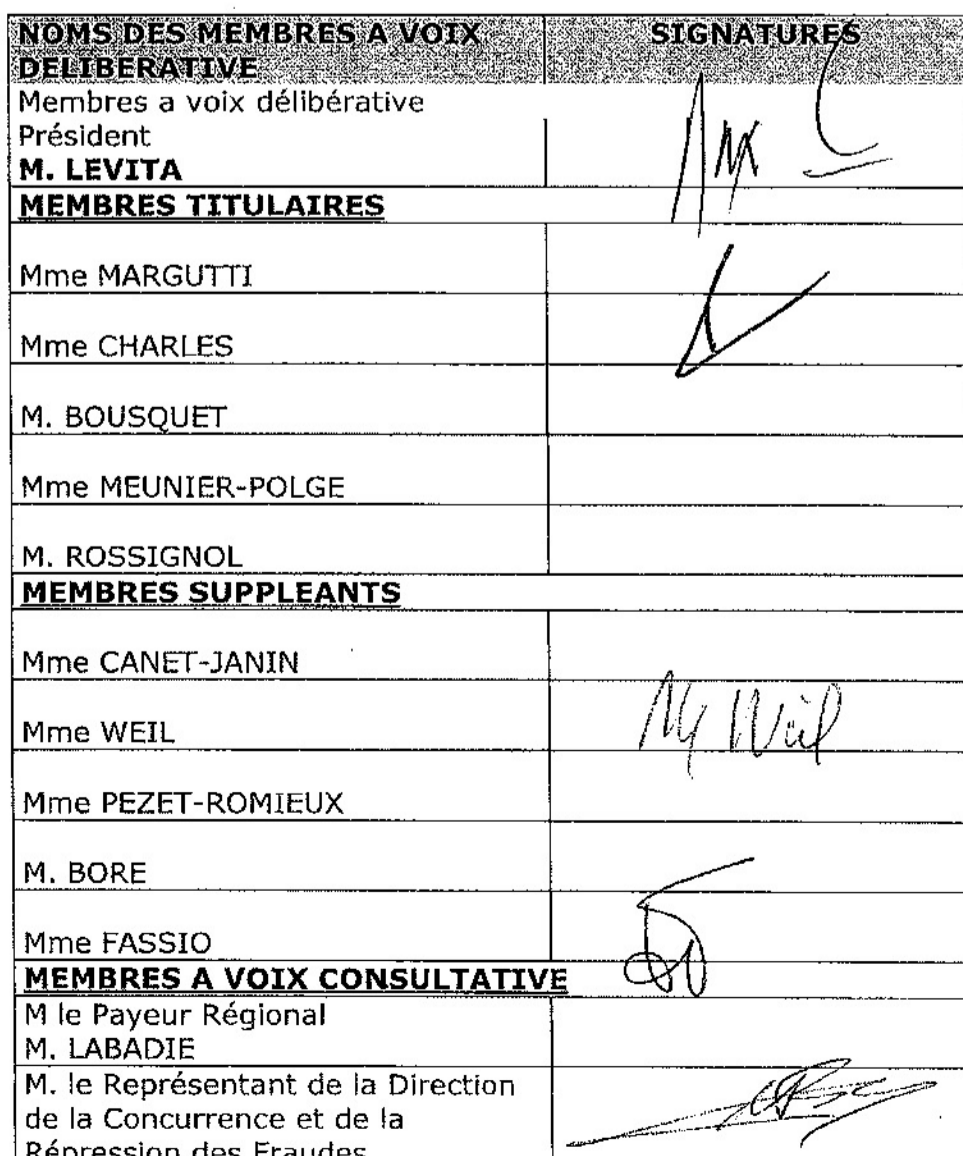 NOMS DES MEMBRES A VOIX DELIBERATIVE
SIGNATURES
Membres a voix délibérative
Président
M. LEVITA
MEMBRES TITULAIRES
Mme MARGUTTI
Mme CHARLES
M. BOUSQUET
Mme MEUNIER-POLGE
M. ROSSIGNOL
MEMBRES SUPPLEANTS
Mme CANET-JANIN
Mme WEIL
Weil
Mme PEZET-ROMIEUX
M. BORE
Mme FASSIO
MEMBRES A VOIX CONSULTATIVE
M le Payeur Régional
M. LABADIE
M. le Représentant de la Direction
de la Concurrence et de la
Répression des Fraudes